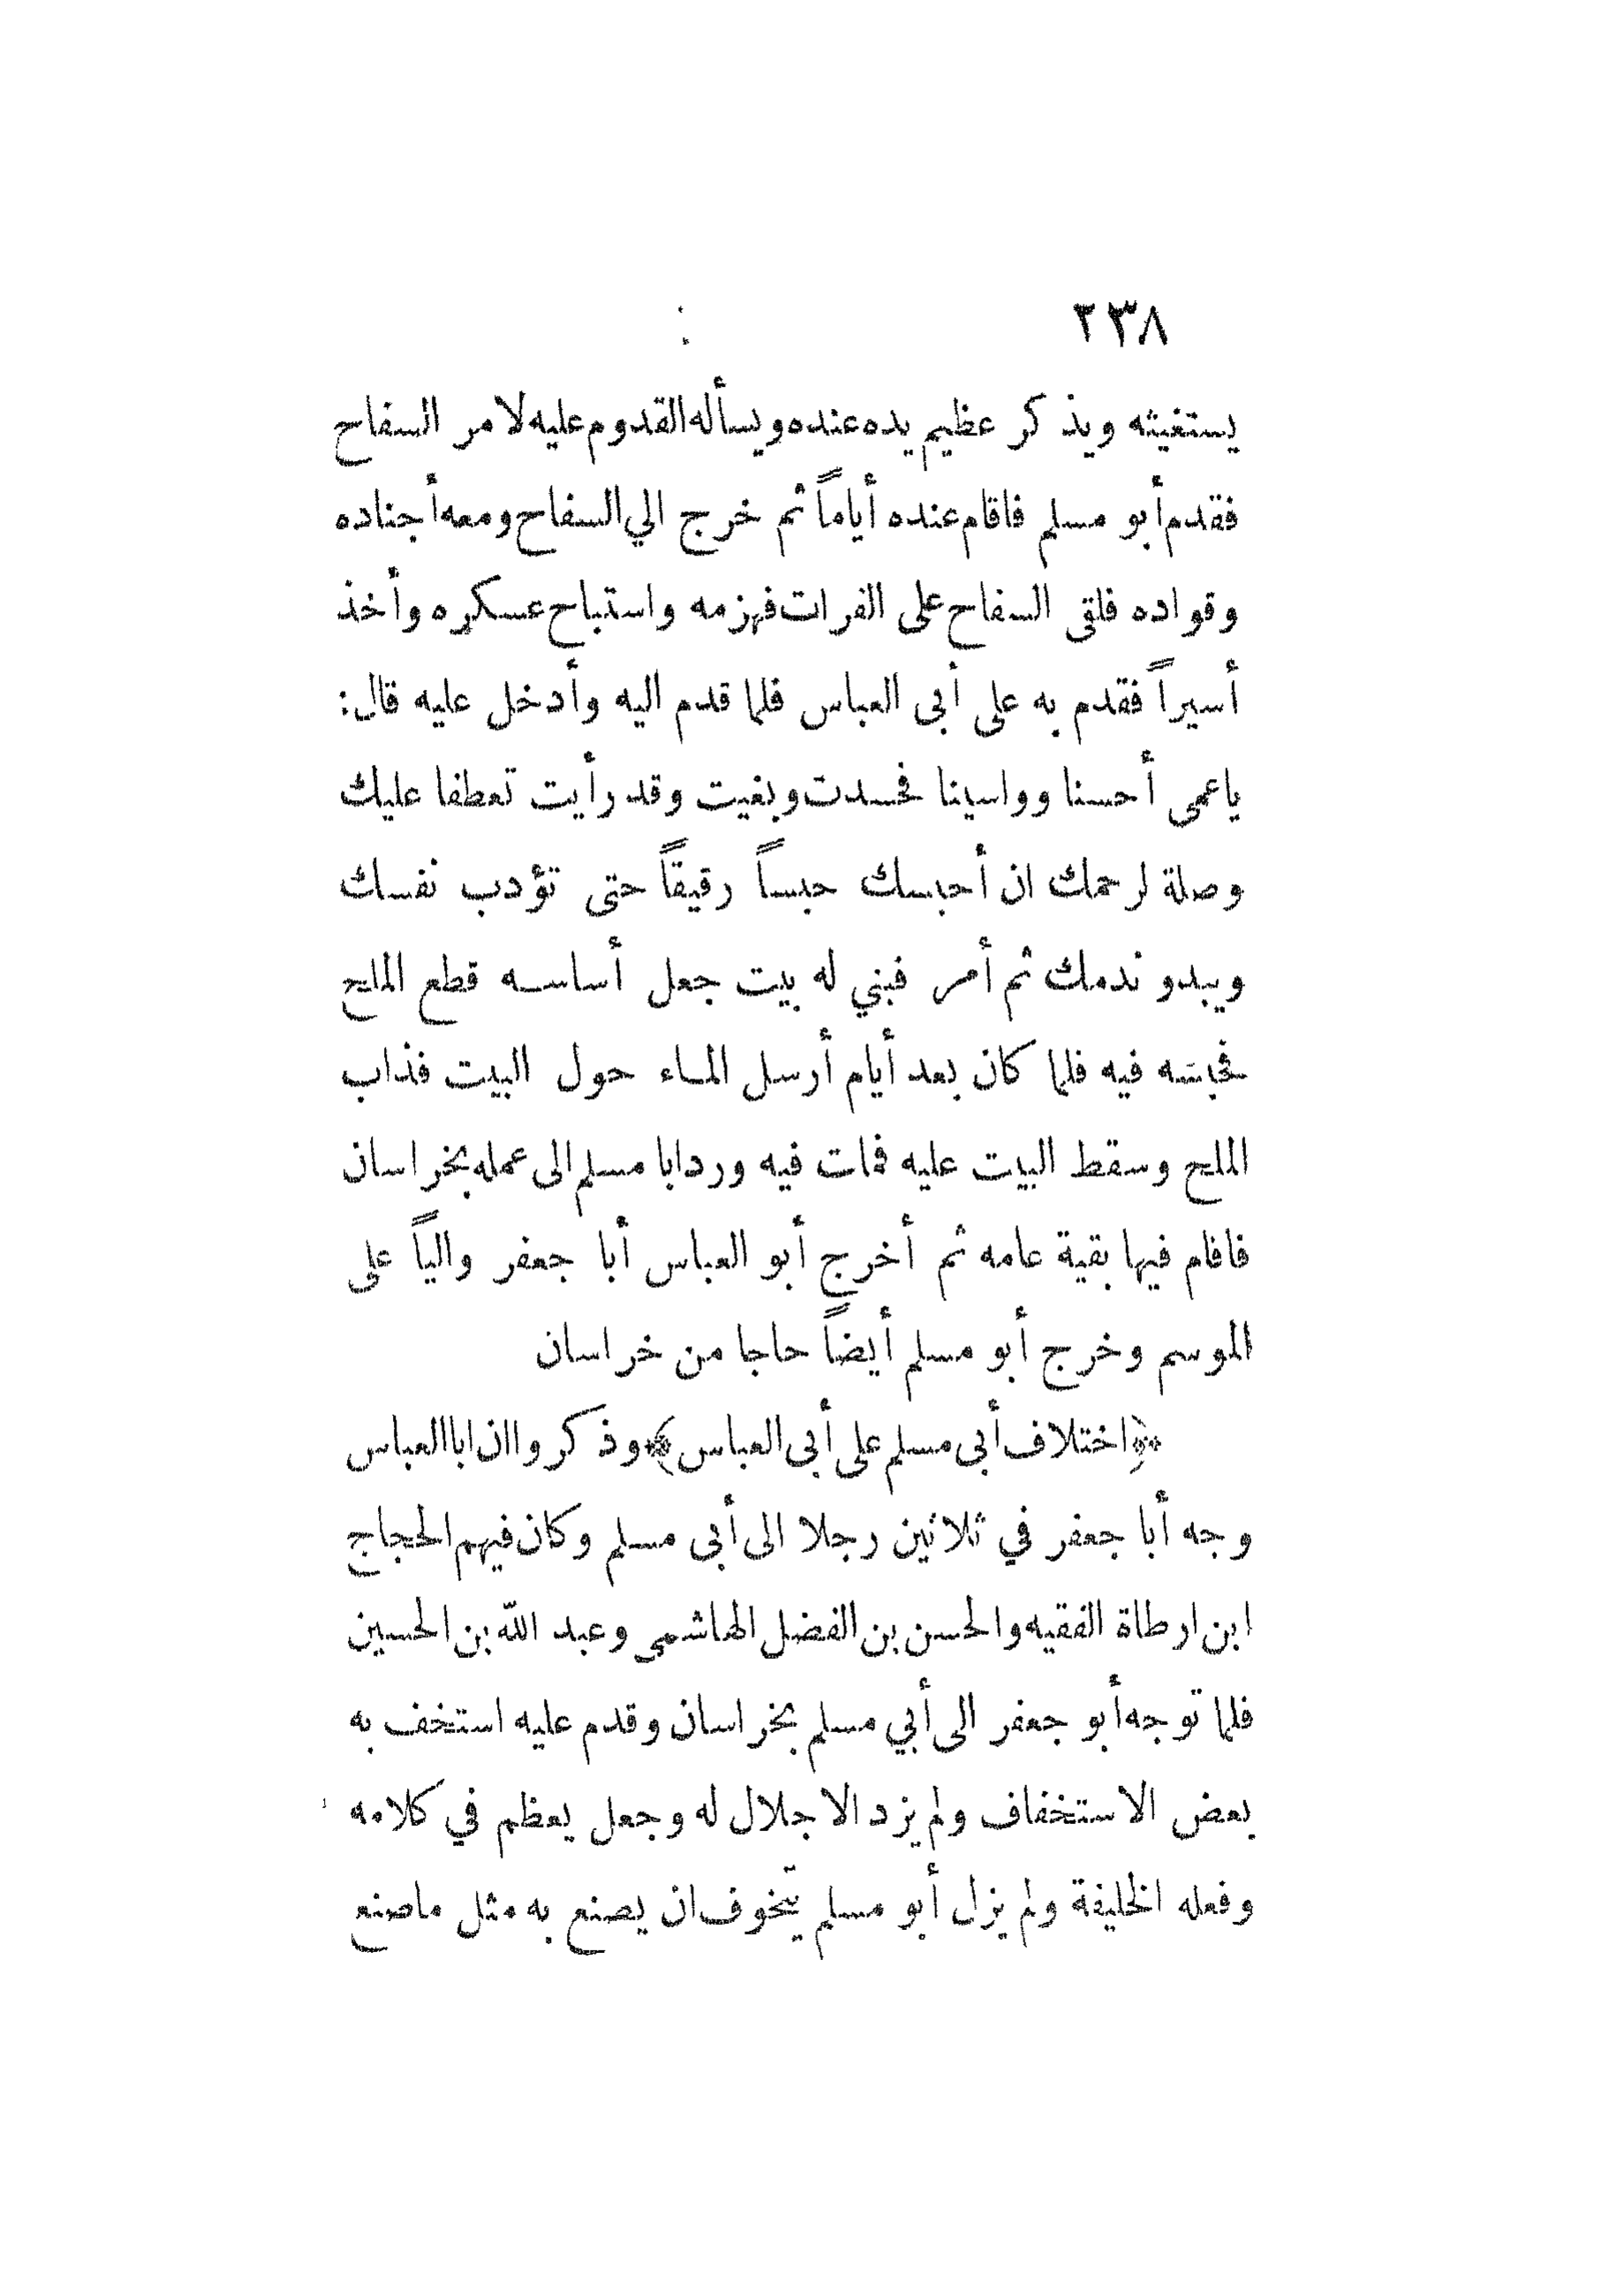 ٢٣٨
يستغيثه ويذكر عظيم يده عنده ويسأله القدوم عليه لامر السفاح
فقدم أبو مسلم فاقام عنده أياماً ثم خرج الي السفاح ومعه أجناده
وقواده فلقى السفاح على الفرات فهزمه واستباح عسكره وأخذ
أسيراً فقدم به على أبى العباس فلما قدم اليه وأدخل عليه قال:
ياعمى أحسنا وواسينا فحسدت وبغيت وقد رأيت تعطفا عليك
وصلة لرحمك ان أحبسك حبساً رقيقاً حتى تؤدب نفسك
ويبدو ندمك ثم أمر فبني له بيت جعل أساسه قطع الملح
فحبسه فيه فلما كان بعد أيام أرسل الماء حول البيت فذاب
الملح وسقط البيت عليه فمات فيه ورد ابا مسلم الى عمله بخراسان
فاقام فيها بقية عامه ثم أخرج أبو العباس أبا جعفر والياً على
الموسم وخرج أبو مسلم أيضاً حاجا من خراسان
﴿اختلاف أبى مسلم على أبى العباس﴾ وذكروا ان ابا العباس
وجه أبا جعفر في ثلاثين رجلا الى أبى مسلم وكان فيهم الحجاج
ابن ارطاة الفقيه والحسن بن الفضل الهاشمى وعبد الله بن الحسين
فلما توجه أبو جعفر الى أبي مسلم بخراسان وقدم عليه استخف به
بعض الاستخفاف ولم يزد الاجلال له وجعل يعظم في كلامه
وفعله الخليفة ولم يزل أبو مسلم يتخوف ان يصنع به مثل ماصنع